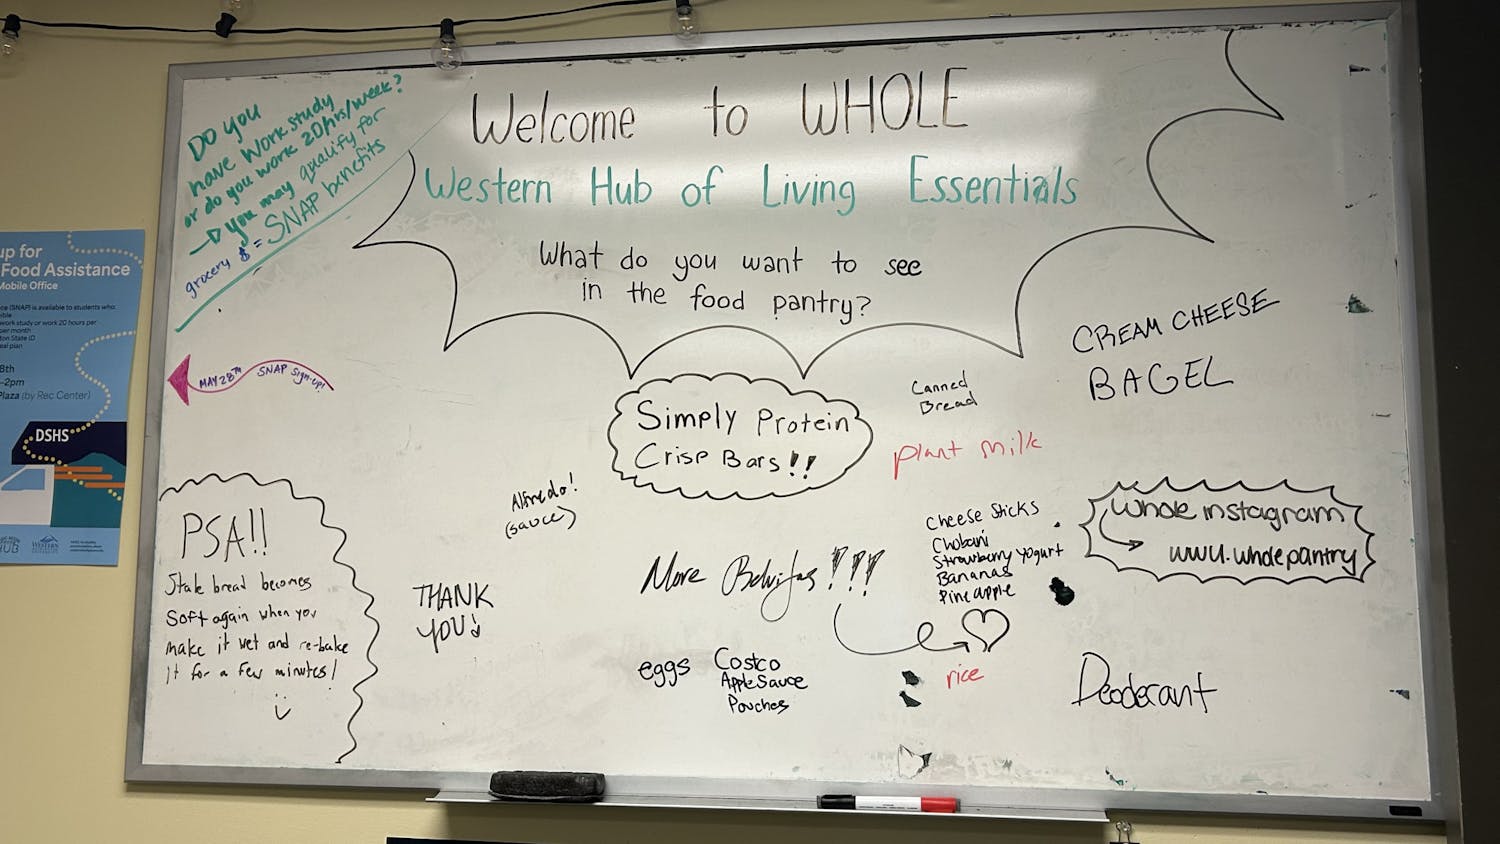 DO YOU
have Work study
or do you work 20hrs/week?
You may qualify for
grocery $ = SNAP benefits
Welcome to WHOLE
Western Hub of Living Essentials
What do you want to see
in the food pantry?
up for
Food Assistance
Mobile Office
ce (SNAP) is available to students who:
work study or work 20 hours per
per month
ton State ID
eal plan
8th
-2pm
Plaza (by Rec Center)
DSHS
HUB
WESTERN
MAY 28TH SNAP Sign-up!
CREAM CHEESE
BAGEL
Canned
Bread
plant milk
Simply Protein
Crisp Bars!!
Alfredo!
(sauce)
PSA!!
Stale bread becomes
Soft again when you
make it wet and re-bake
it for a few minutes!
THANK
YOU!
More Belvitas!!!
Cheese Sticks
Chobani
Strawberry Yogurt
Bananas
Pineapple
whole instagram
www.wholepantry
eggs
Costco
Apple Sauce
Pouches
rice
Deoderant